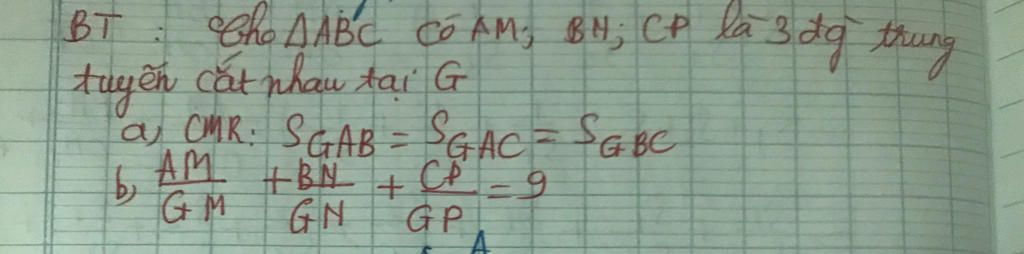 BT : Cho ΔABC có AM; BN; CP là 3 đg trung
tuyến cắt nhau tại G
a) CMR: S_GAB = S_GAC = S_GBC
b) AM/GM + BN/GN + CP/GP = 9
A